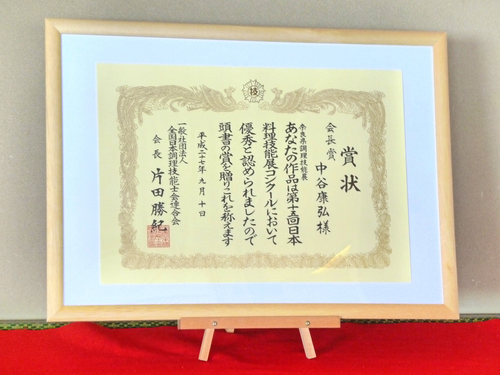 技
賞状
会長賞
中谷康弘様
奈良県調理技能展
あなたの作品は第十五回日本
料理技能展コンクールにおいて
優秀と認められましたので
頭書の賞を贈りこれを称えます
平成二十七年九月十日
一般社団法人
全国日本調理技能士会連合会
会長 片田勝紀